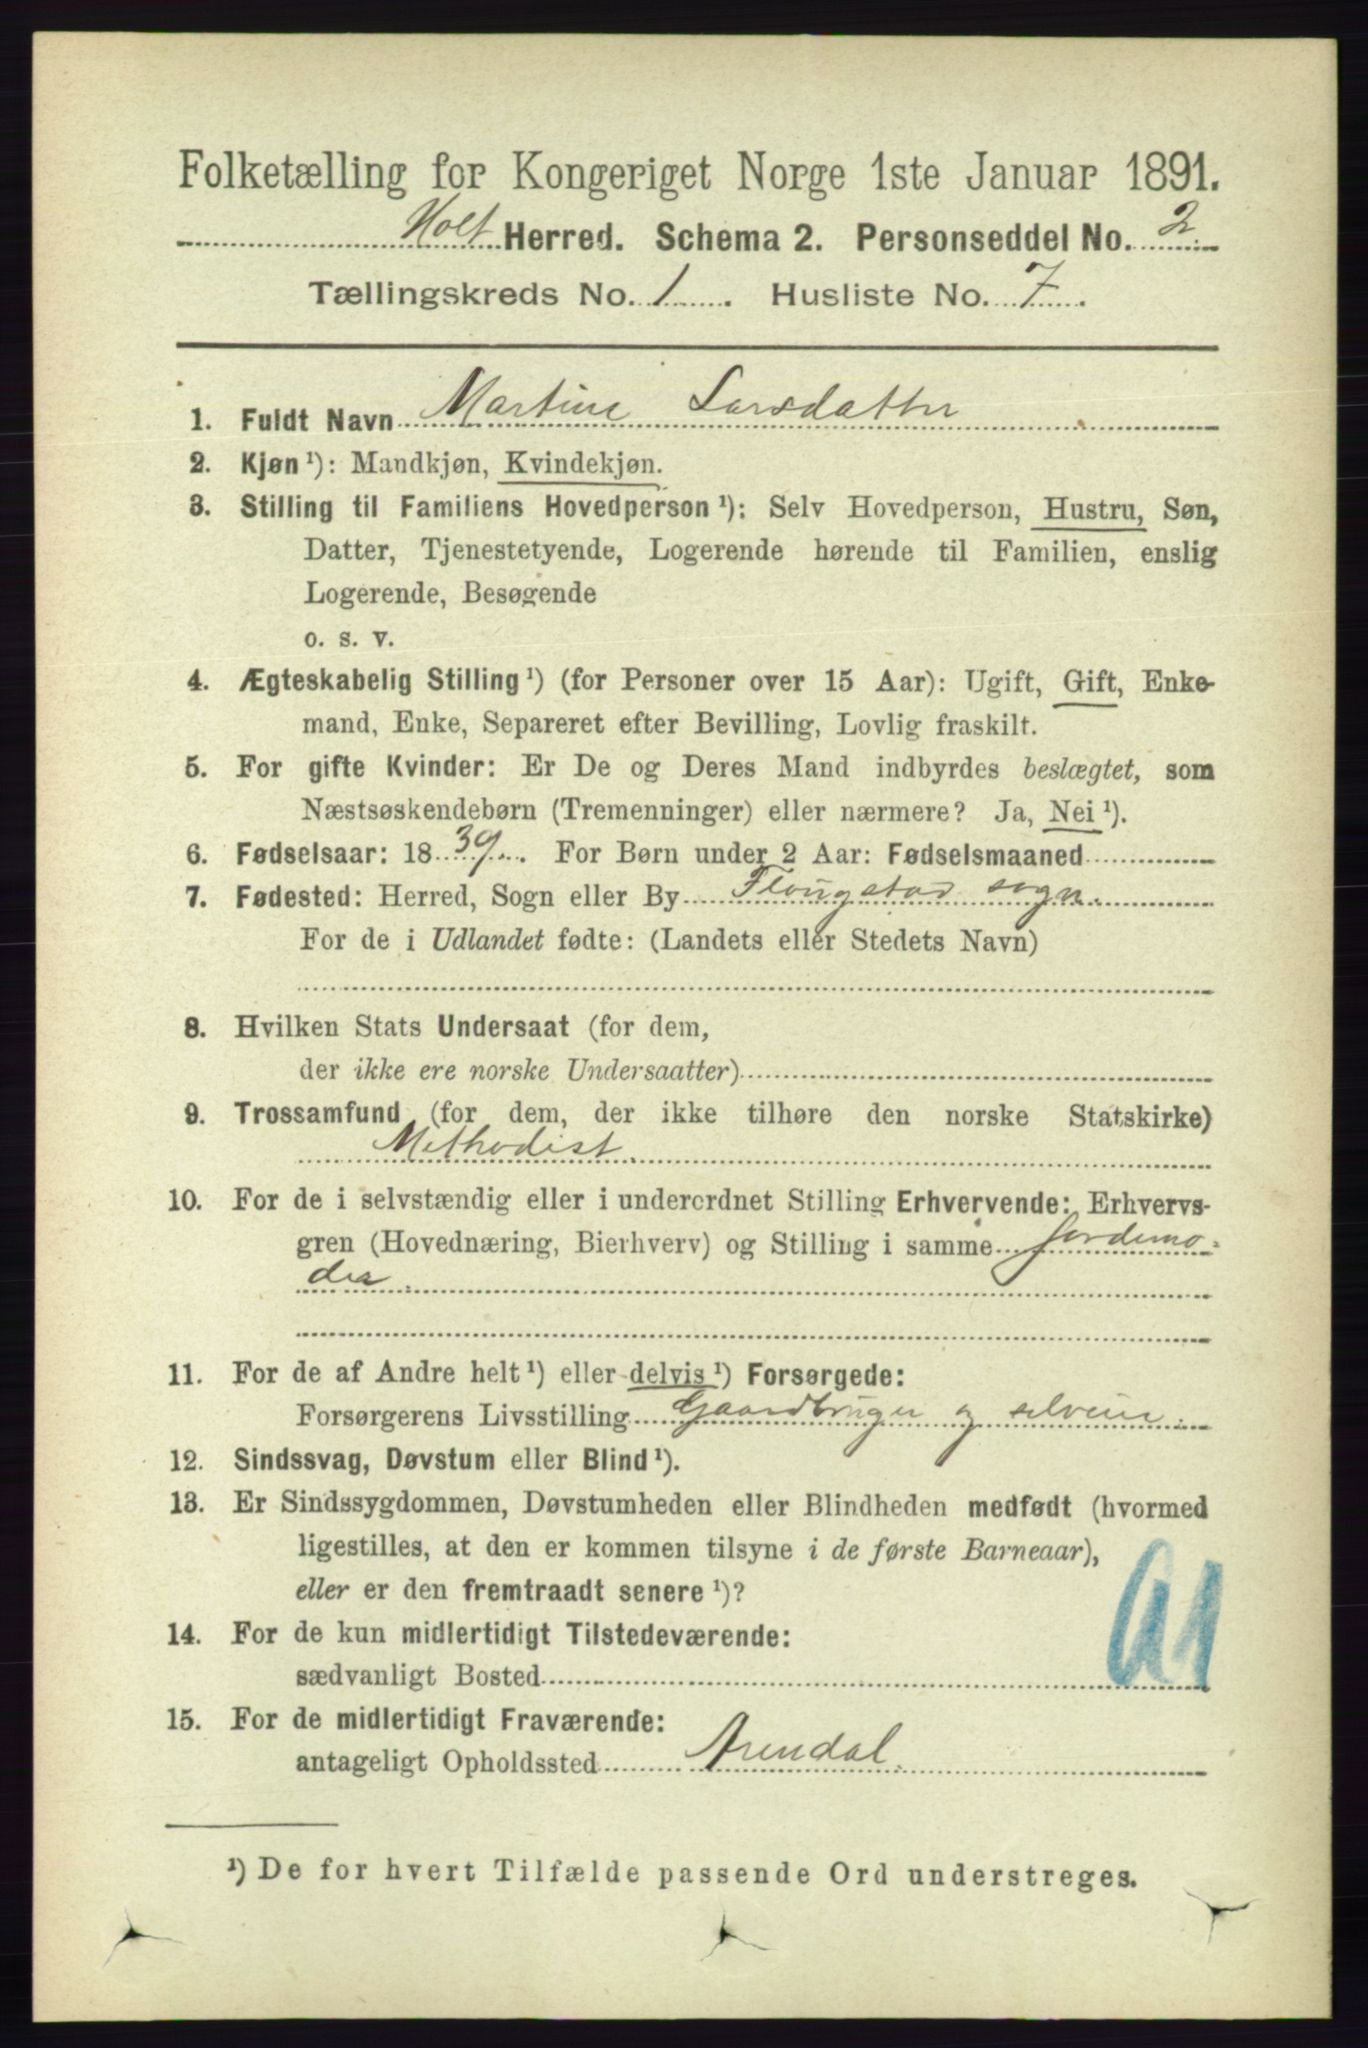 Folketælling for Kongeriget Norge 1ste Januar 1891.
Holt Herred. Schema 2. Personseddel No. 2
Tællingskreds No. 1. Husliste No. 7.
1. Fuldt Navn Martine Larsdatter
2. Kjøn ¹): Mandkjøn, Kvindekjøn.
3. Stilling til Familiens Hovedperson ¹): Selv Hovedperson, Hustru, Søn,
Datter, Tjenestetyende, Logerende hørende til Familien, enslig
Logerende, Besøgende
o. s. v.
4. Ægteskabelig Stilling ¹) (for Personer over 15 Aar): Ugift, Gift, Enke-
mand, Enke, Separeret efter Bevilling, Lovlig fraskilt.
5. For gifte Kvinder: Er De og Deres Mand indbyrdes beslægtet, som
Næstsøskendebørn (Tremenninger) eller nærmere? Ja, Nei ¹).
6. Fødselsaar: 1839. For Børn under 2 Aar: Fødselsmaaned
7. Fødested: Herred, Sogn eller By Flougstad sogn.
For de i Udlandet fødte: (Landets eller Stedets Navn)
8. Hvilken Stats Undersaat (for dem,
der ikke ere norske Undersaatter)
9. Trossamfund (for dem, der ikke tilhøre den norske Statskirke)
Methodist.
10. For de i selvstændig eller i underordnet Stilling Erhvervende: Erhvervs-
gren (Hovednæring, Bierhverv) og Stilling i samme Jordemo-
der.
11. For de af Andre helt ¹) eller delvis ¹) Forsørgede:
Forsørgerens Livsstilling Gaardbruger og selveier.
12. Sindssvag, Døvstum eller Blind ¹).
13. Er Sindssygdommen, Døvstumheden eller Blindheden medfødt (hvormed
ligestilles, at den er kommen tilsyne i de første Barneaar),
eller er den fremtraadt senere ¹)?
14. For de kun midlertidigt Tilstedeværende:
sædvanligt Bosted
15. For de midlertidigt Fraværende:
antageligt Opholdssted Arendal.
¹) De for hvert Tilfælde passende Ord understreges.